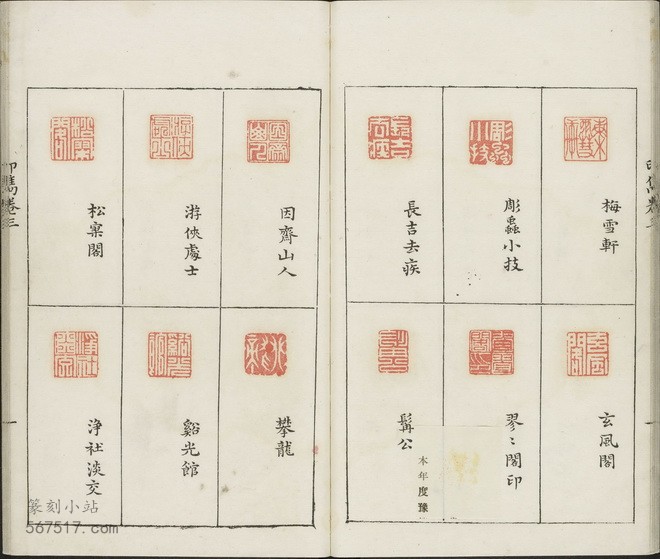 梅雪軒
彫蟲小技
長吉去疾
玄風閣
翏〻閣印
髯公
本年度豫
因齊山人
游俠處士
松寥閣
攀龍
谿光館
淨社淡交
印雋卷三
篆刻小站
567517.com